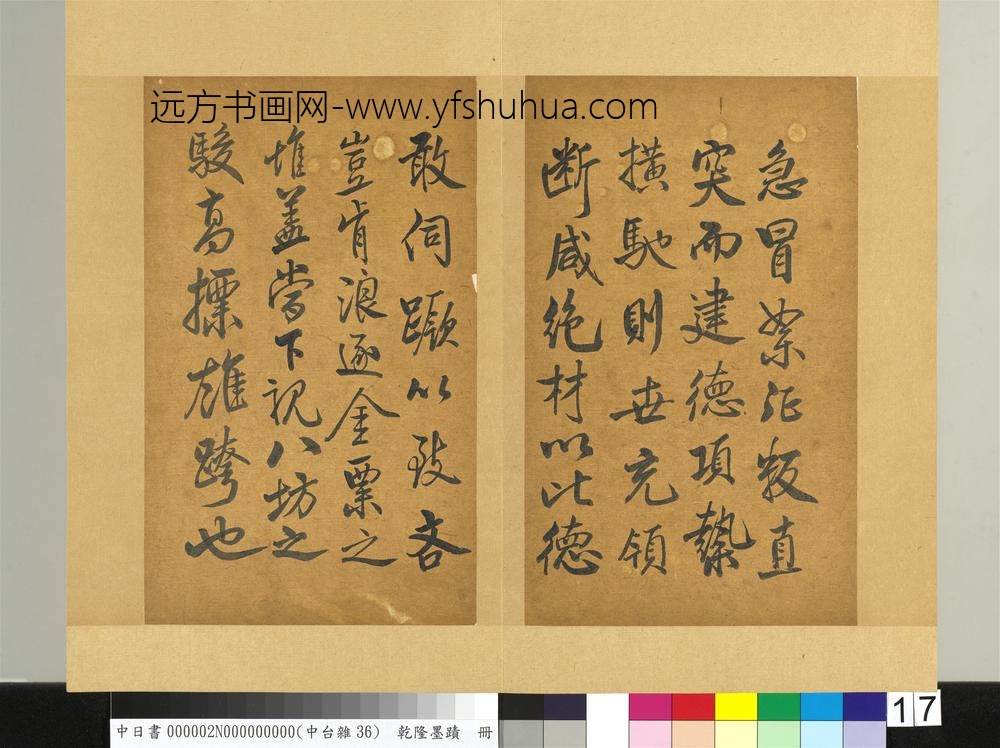 远方书画网-www.yfshuhua.com
急冒絮征叛直
突而建德項縶
横馳則世充領
断咸絶材以比德
敢伺蹶以致吝
豈肯浪逐金粟之
堆盖嘗下視八坊之
駿高摽雄跨也
中日書000002N000000000(中台雜36) 乾隆墨蹟 冊
17